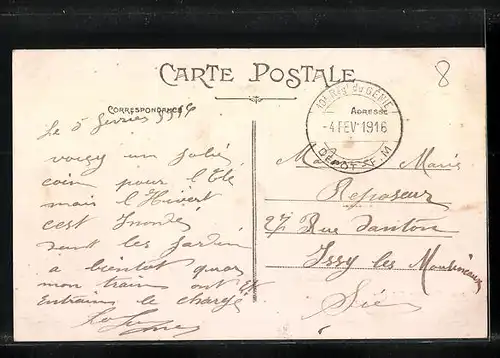 CARTE POSTALE
CORRESPONDANCE
ADRESSE
8
10e Régt du GÉNIE
-4 FEV 1916
DÉPÔT
Le 5 fevrier
voisy un jolie
coin pour l'Eté
mais l'Hivert
c'est Inondé
les Jardin
a bientot
mon train ont
Entrains le chargé
Marie
Reposeur
27 Rue danton
Issy les Moulineaux